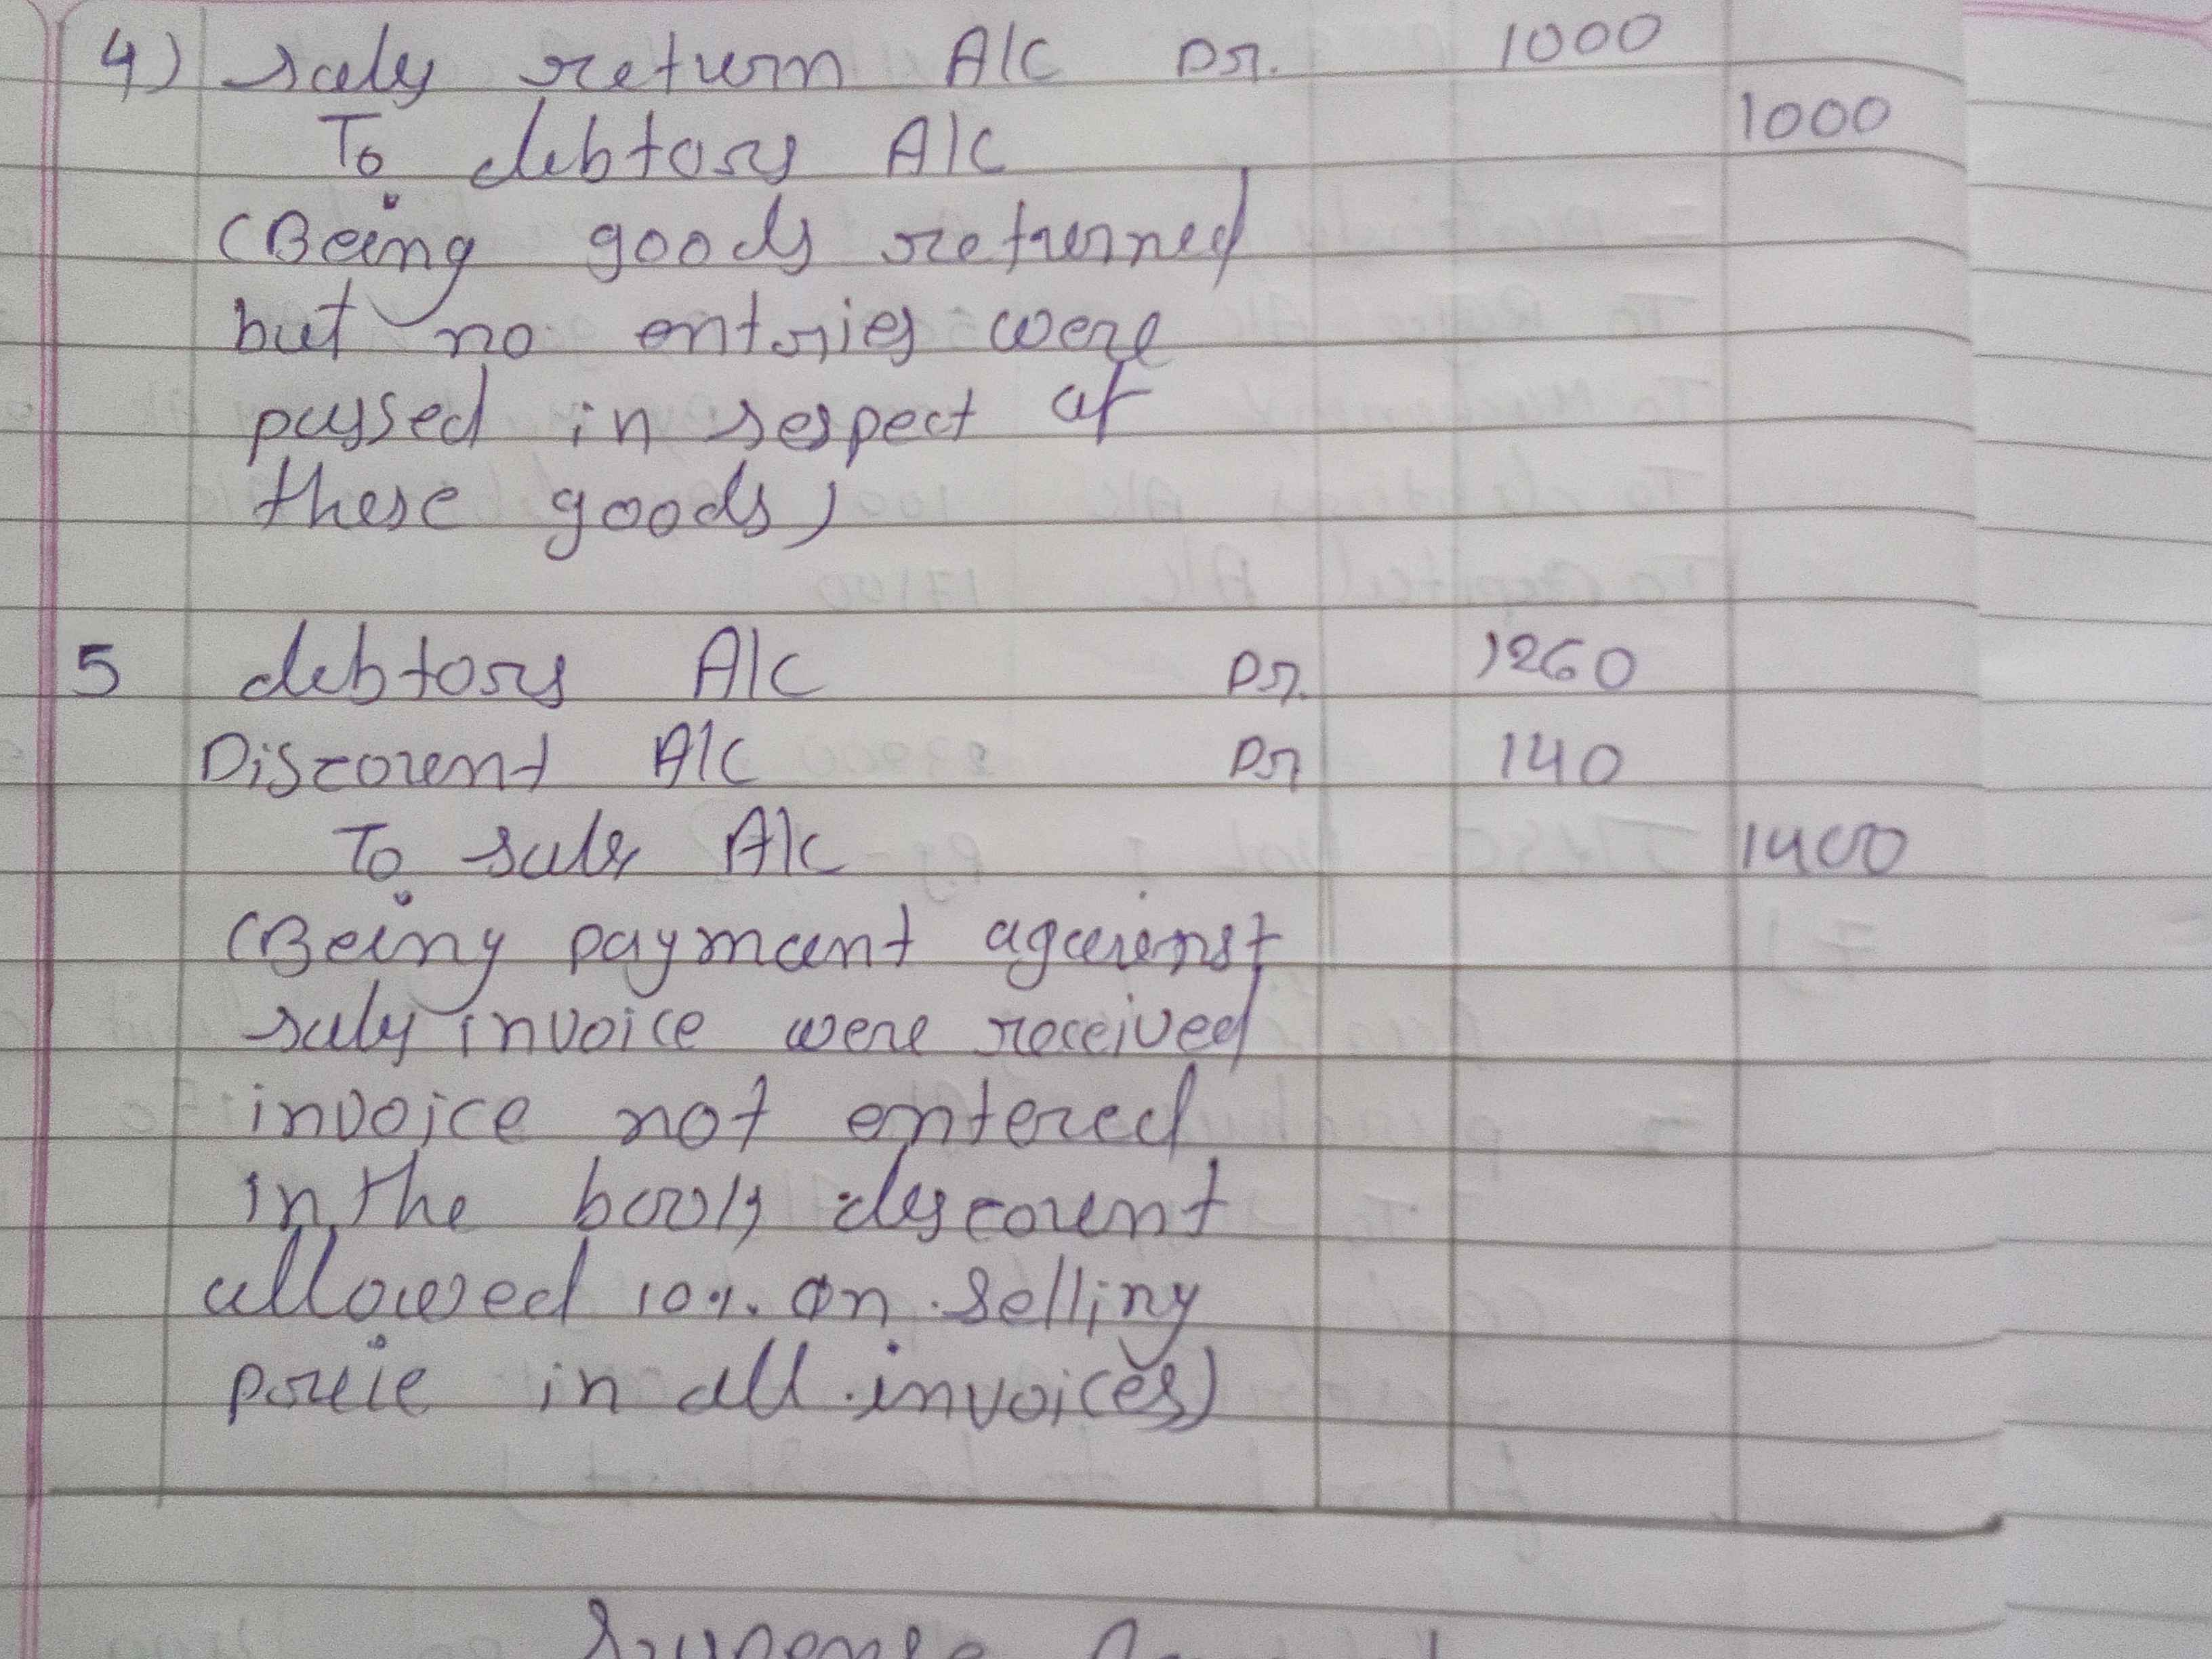 4) sales return A/c Dr. 1000
To debtors A/c 1000
(Being goods returned
but no entries were
passed in respect of
these goods)
5 debtors A/c Dr. 1260
Discount A/c Dr 140
To sales A/c 1400
(Being payment against
sales invoice were received
invoice not entered
in the books discount
allowed 10% on selling
price in all invoices)
Suspense